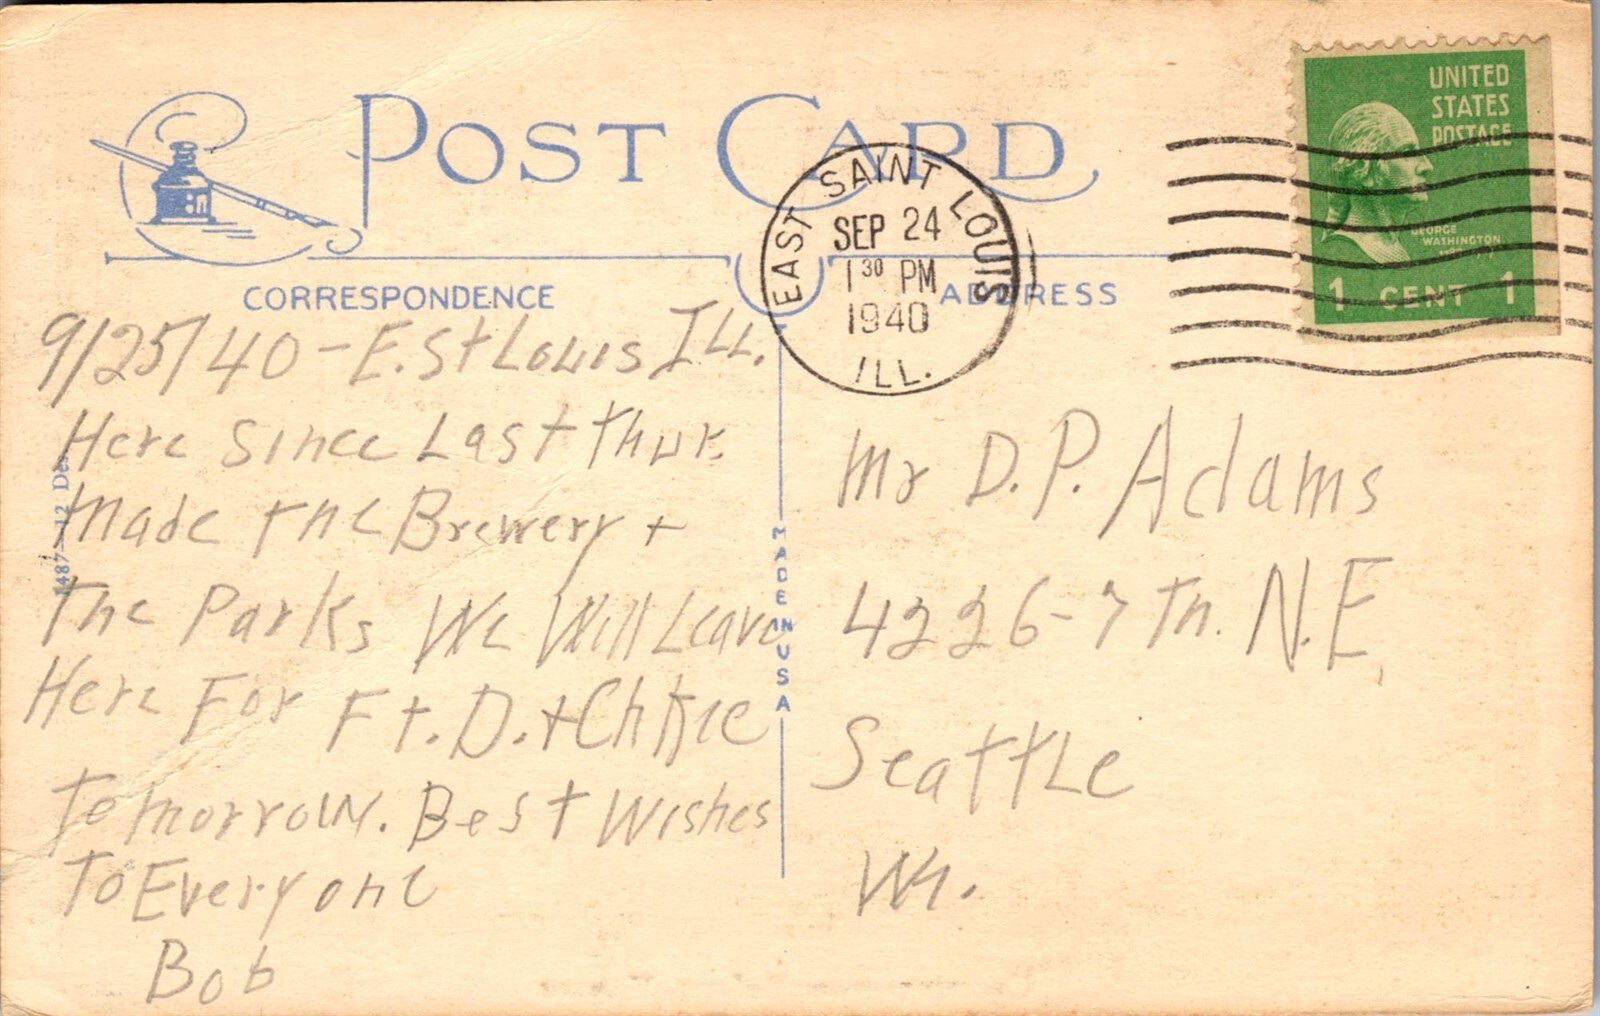 POST CARD
CORRESPONDENCE
ADDRESS
UNITED
STATES
POSTAGE
GEORGE
WASHINGTON
1 CENT 1
EAST SAINT LOUIS
SEP 24
1 30 PM
1940
ILL.
9/25/40 - E. St Louis Ill.
Here Since Last Thur.
Made the Brewery +
The Parks We Will Leave
Here For Ft. D. +
Tomorrow. Best Wishes
To Everyone
Bob
MADE IN USA
Mr D. P. Adams
4226 - 7 Th. N.E.
Seattle
Wn.